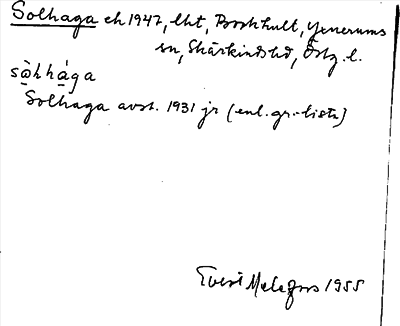 Solhaga ek 1947, lht, Borkhult, Yxnerums
sn, Skärkinds hd, Östg. l.
sòlhàga
Solhaga avst. 1931 jr (enl. gr.-lista)
Evert Melefors 1955